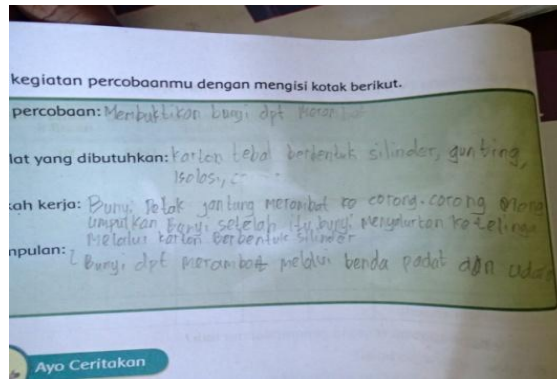 kegiatan percobaanmu dengan mengisi kotak berikut.
percobaan: Membuktikan bunyi dpt
lat yang dibutuhkan: karton tebal berbentuk silinder, gunting,
isolosi,
kah kerja: Bunyi Detak jantung merambat ke corong. corong
umpulkan Bunyi setelah itu bunyi menyalurkan ke telinga
melalui karton Berbentuk silinder
mpulan: Bunyi dpt merambat melalui benda padat dan udar
Ayo Ceritakan